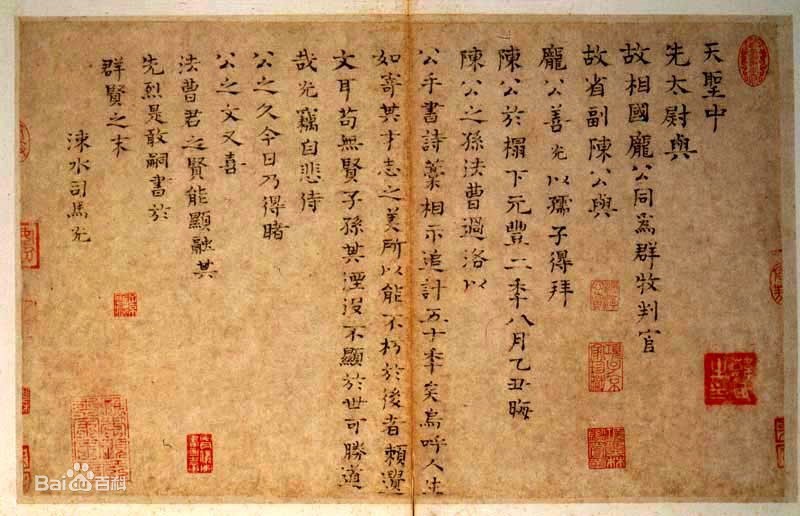 天聖中
先太尉與
故相國龐公同爲群牧判官
故省副陳公與
龐公善光以孺子得拜
陳公於榻下元豐二年八月乙丑晦
陳公之孫法曹過洛以
公手書詩藁相示追計五十年矣烏呼人生
如寄其才志之美所以能不朽於後者賴遺
文耳苟無賢子孫其湮沒不顯於世可勝道
哉光竊自悲待
公之久今日乃得睹
公之文又喜
法曹君之賢能顯融其
先烈是敢嗣書於
群賢之末
涑水司馬光
Bai百科